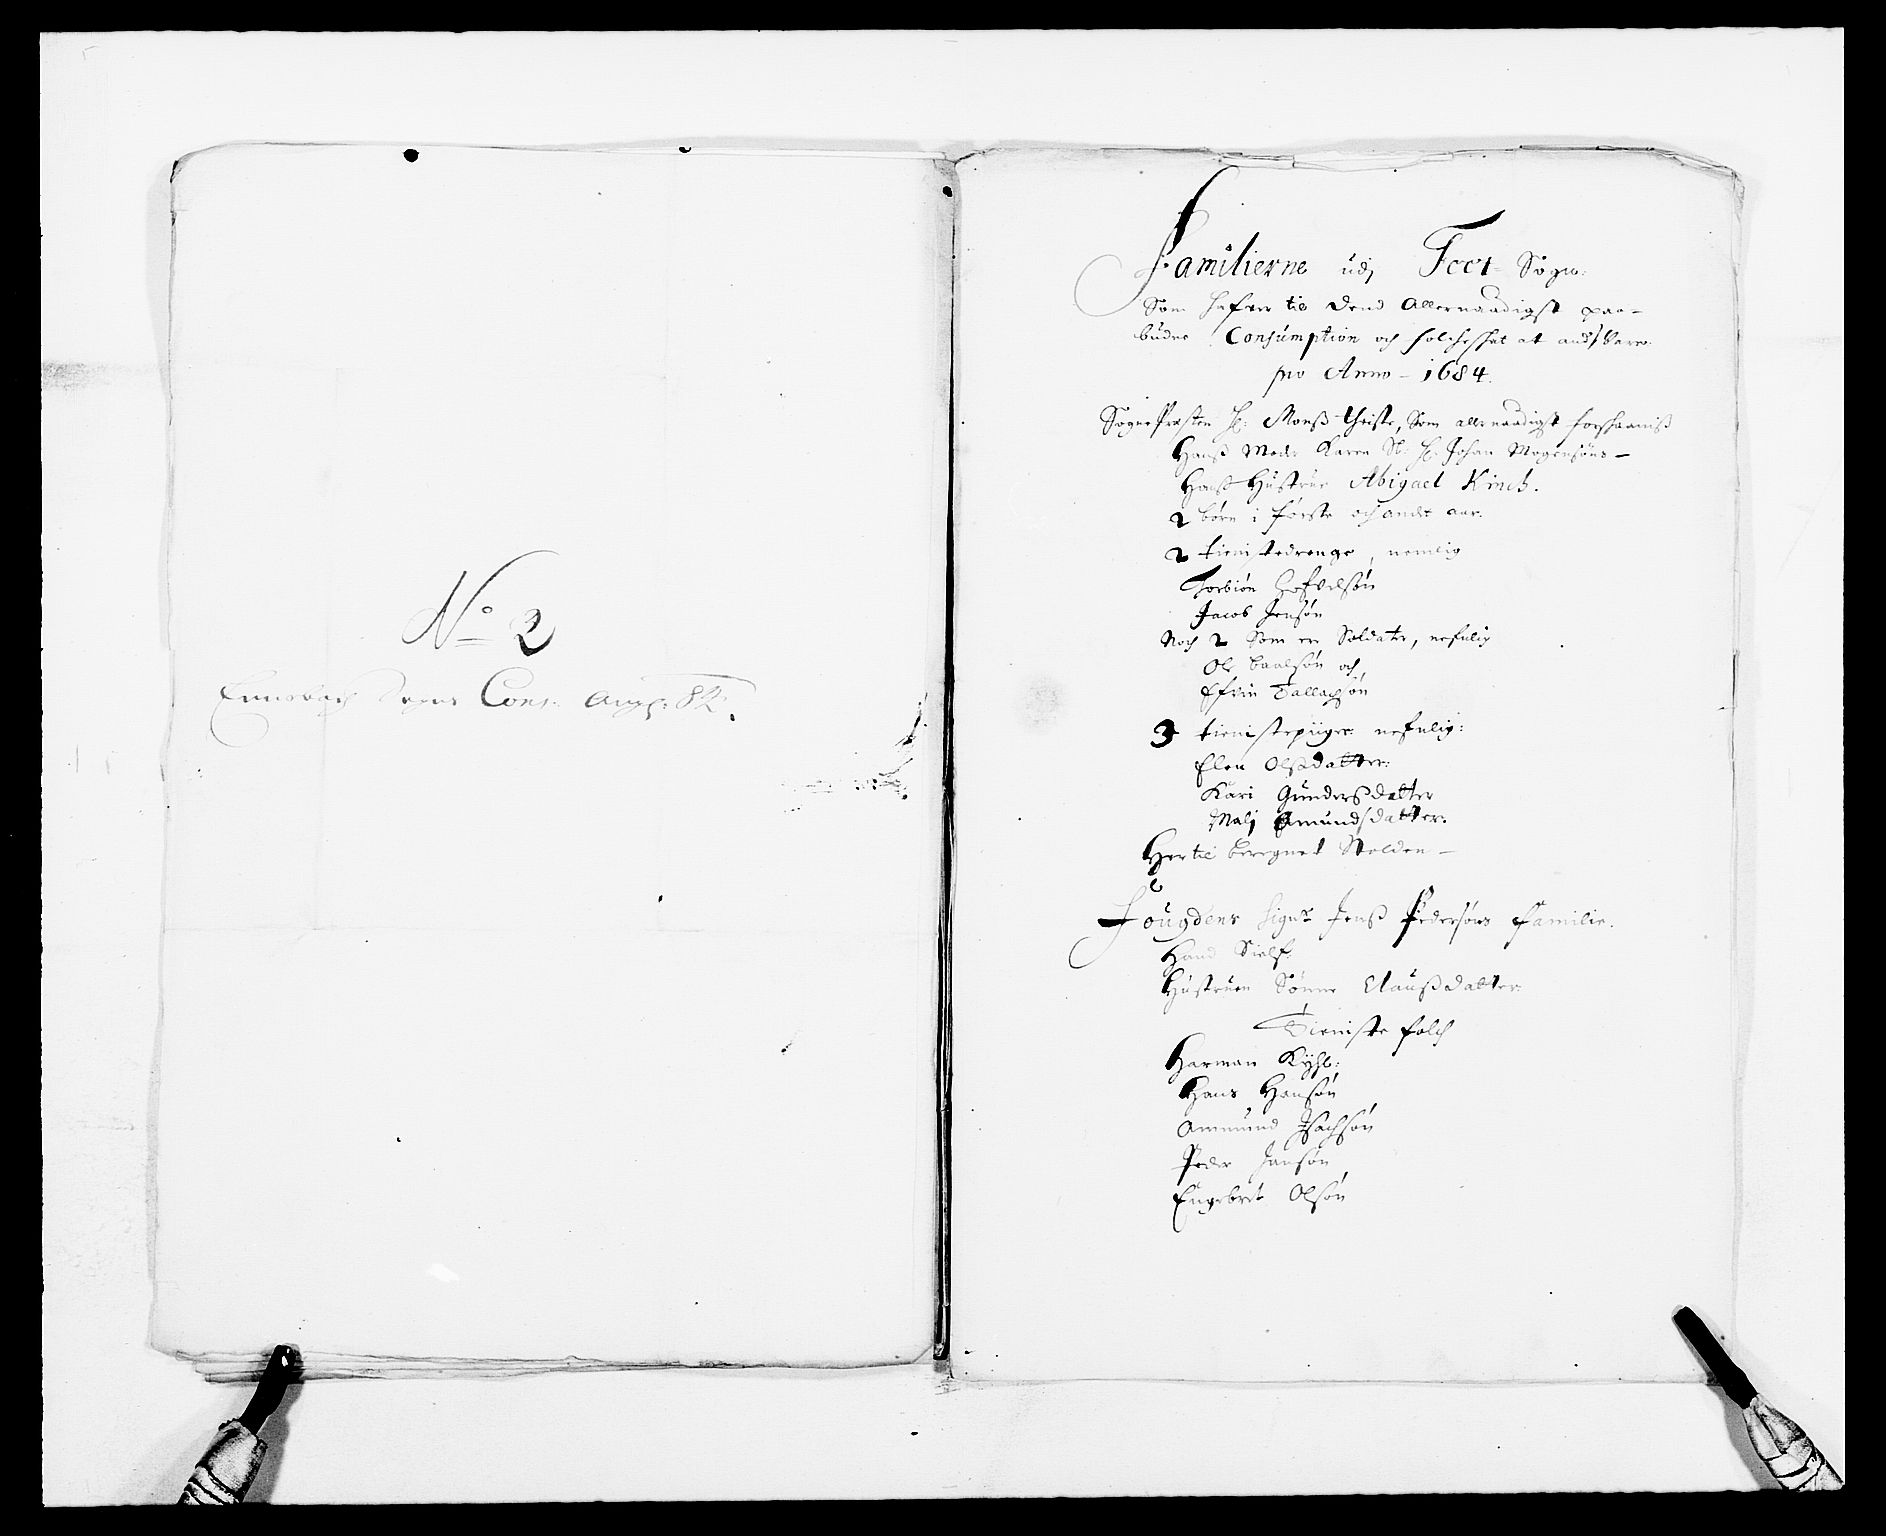 No 2
Ennebach Sogns Cons: Ang: 84.
Familierne udj Foer Sogn:
Som hafver til dend Allernaadigst paa-
budne Consumption och folcheskat at andsvare
pro Anno - 1684.
SognePræsten H: Monß theiste, Som allernaadigst forskaaniß
Hanß Moder Karen Sl: H: Johan Mogensöns -
Hanß Hüstrüe Abigael Kinch.
2 börn i förste och andet aar.
2 tienistedrenge, nemlig
Torbiön
Jacob Jensön
Noch 2 Som er Soldater, nefnlig
Ole Paalsön och
Efvin Tallachsön
3 tienistepiiger nefnlig:
Elen Olßdatter:
Kari Gundersdatter
Malj Amundsdatter.
Hertil beregnet Wolden -
Fougdens Signr Jenß Pedersöns Familie.
Hand Sielf.
Hüstruen Sönne Claußdatter
Tieniste folch
Harman Kyhl:
Hans Hansön
Ammund Isachsön
Peder Jansön
Engebret Olsön